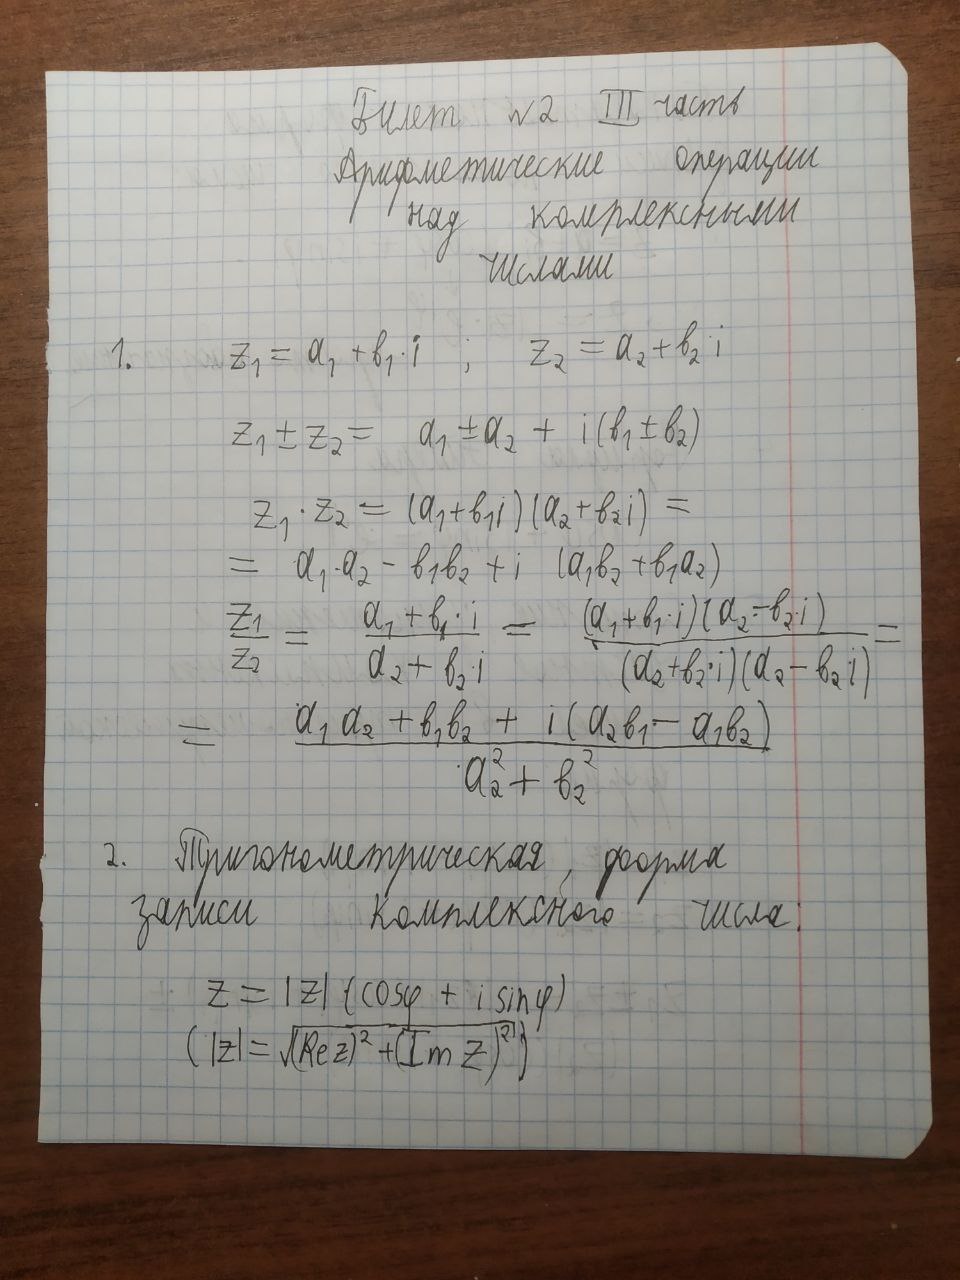 Билет №2 III часть
Арифметические операции
над комплексными
числами
1. z₁ = a₁ + b₁·i ; z₂ = a₂ + b₂·i
z₁ ± z₂ = a₁ ± a₂ + i(b₁ ± b₂)
z₁·z₂ = (a₁+b₁i)(a₂+b₂i) =
= a₁·a₂ - b₁b₂ + i (a₁b₂ + b₁a₂)
z₁/z₂ = (a₁ + b₁·i)/(a₂ + b₂·i) = ((a₁+b₁·i)(a₂-b₂·i))/((a₂+b₂·i)(a₂-b₂i)) =
= (a₁a₂ + b₁b₂ + i(a₂b₁ - a₁b₂))/(a₂² + b₂²)
2. Тригонометрическая форма
записи комплексного числа:
z = |z| (cosφ + i sinφ)
(|z| = √((Re z)² + (Im z)²))